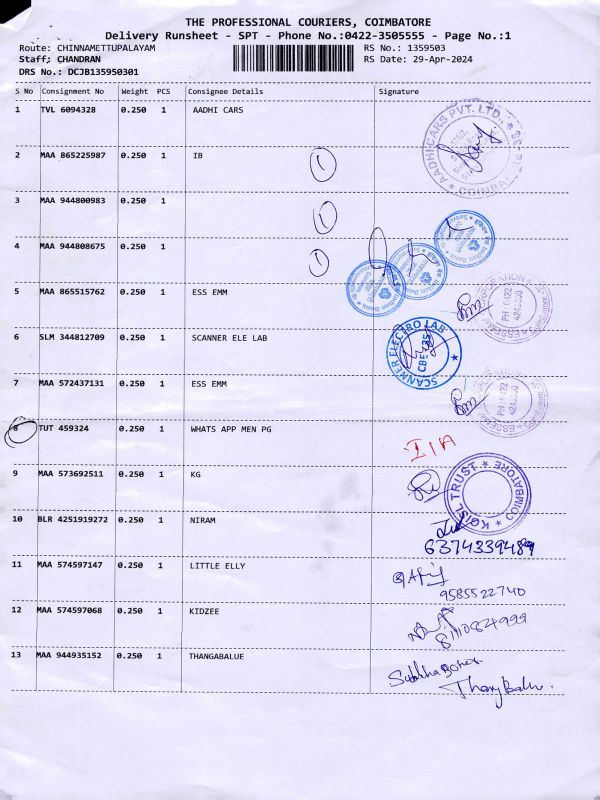 THE PROFESSIONAL COURIERS, COIMBATORE
Delivery Runsheet - SPT - Phone No.:0422-3505555 - Page No.:1
Route: CHINNAMETTUPALAYAM RS No.: 1359503
Staff; CHANDRAN RS Date: 29-Apr-2024
DRS No.: DCJB135950301
S No Consignment No Weight PCS Consignee Details Signature
1 TVL 6094328 0.250 1 AADHI CARS
AADHI CARS PVT. LTD.,
2 MAA 865225987 0.250 1 IB 1
3 MAA 944800983 0.250 1 1
4 MAA 944808675 0.250 1 1
5 MAA 865515762 0.250 1 ESS EMM
PH:0422
6 SLM 344812709 0.250 1 SCANNER ELE LAB
SCANNER ELECTRO LAB
7 MAA 572437131 0.250 1 ESS EMM
PH:0422
8 TUT 459324 0.250 1 WHATS APP MEN PG
I/A
9 MAA 573692511 0.250 1 KG
TRUST COIMBATORE
10 BLR 4251919272 0.250 1 NIRAM
6374339489
11 MAA 574597147 0.250 1 LITTLE ELLY
9585522740
12 MAA 574597068 0.250 1 KIDZEE
8110084999
13 MAA 944935152 0.250 1 THANGABALUE